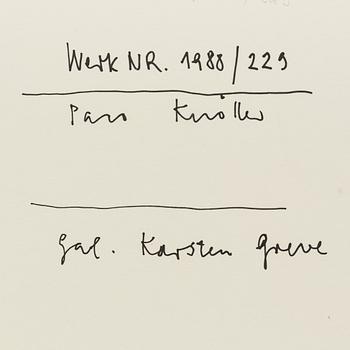 Werk NR. 1988/229
Paco Knöller
Gal. Karsten Greve